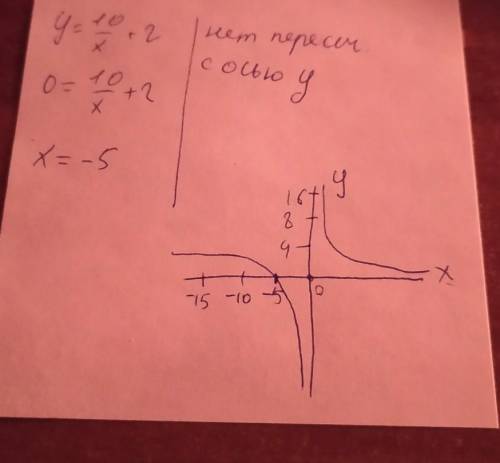 y = 10/x + 2
0 = 10/x + 2
x = -5
нет пересеч
с осью y
y
16
8
4
x
-15 -10 -5 0